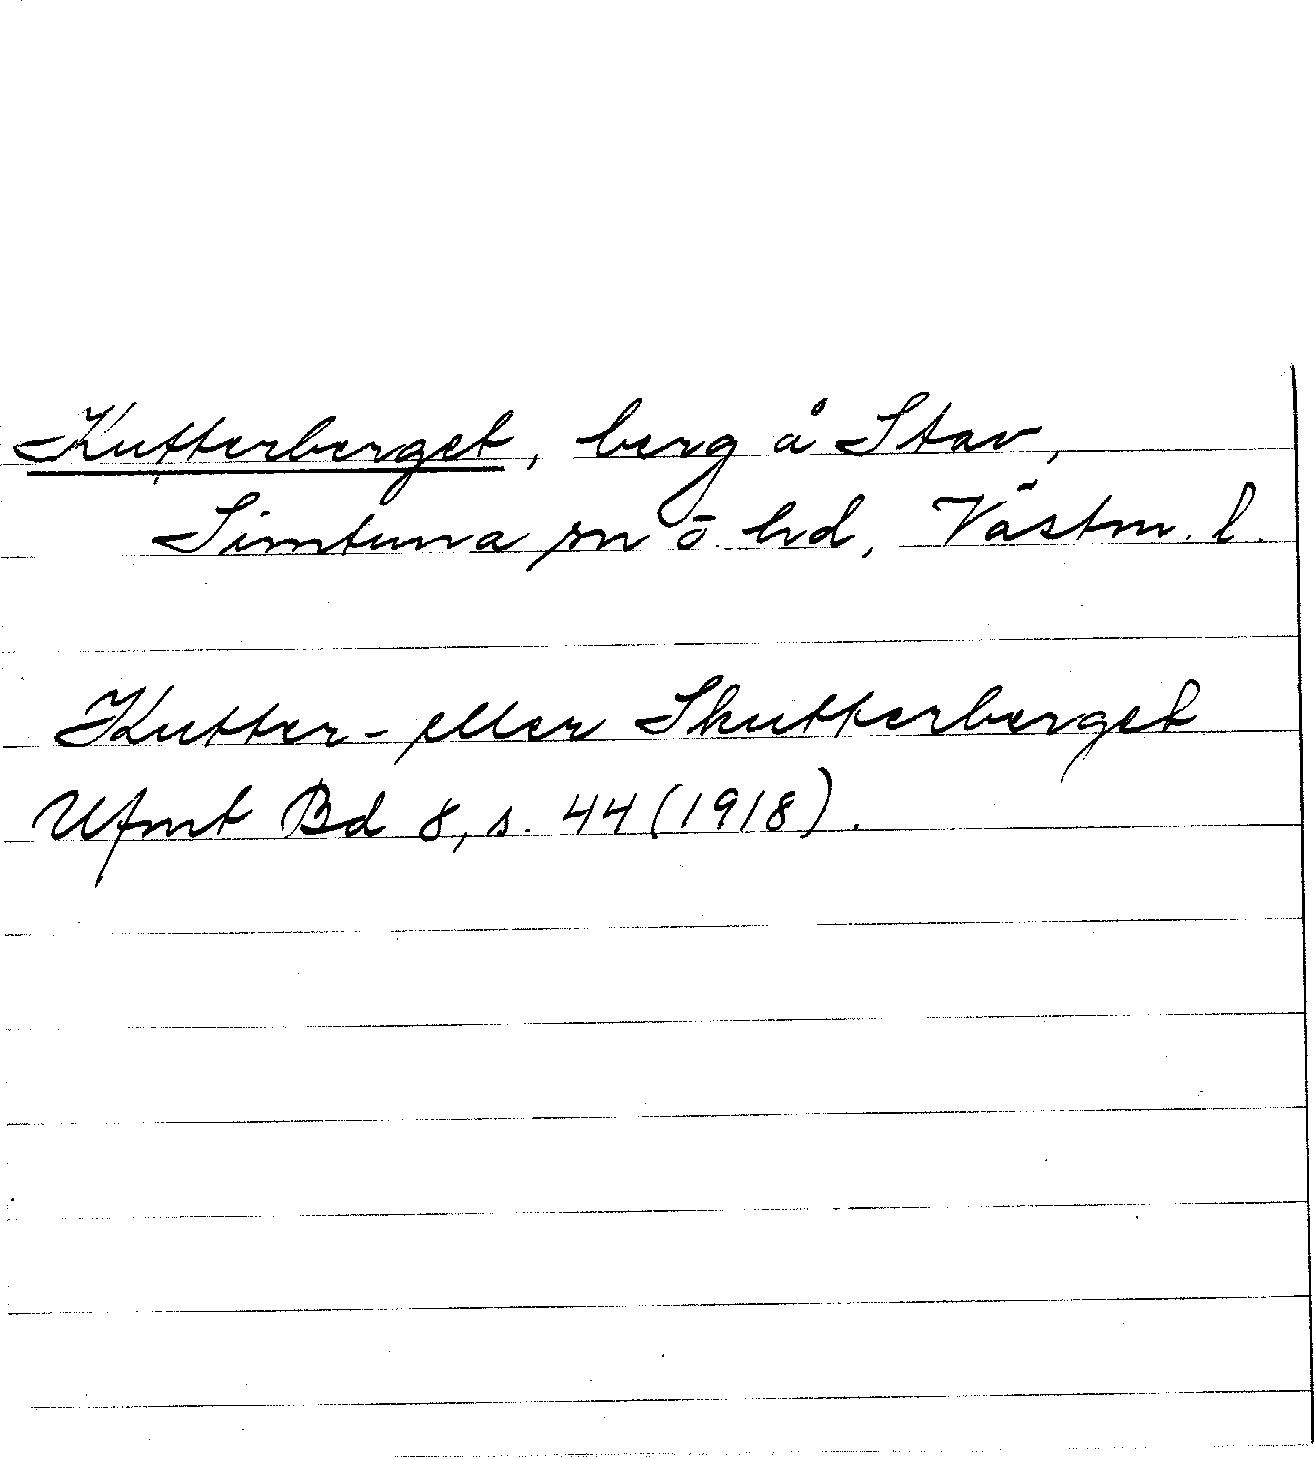 Kutterberget, berg å Stav,
Simtuna sn o. hd, Västm. l.
Kutter- eller Skutterberget
Ufmt Bd 8, s. 44 (1918).